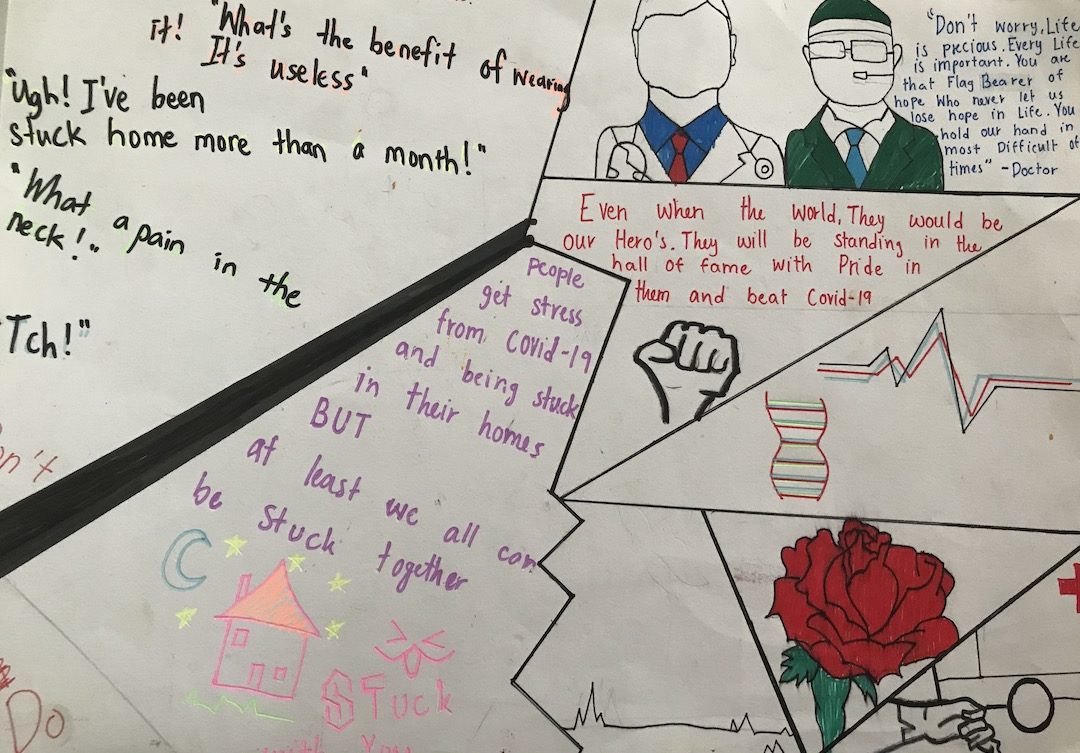 it! "What's the benefit of wearing
It's useless"
"Ugh! I've been
stuck home more than a month!"
"What a pain in the
neck!"
Tch!"
"Don't worry. Life
is precious. Every Life
is important. You are
that Flag Bearer of
hope Who never let us
lose hope in Life. You
hold our hand in
most Difficult of
times" - Doctor
Even when the world, They would be
our Hero's. They will be standing in the
hall of fame with Pride in
them and beat Covid-19
People
get stress
from Covid-19
and being stuck
in their homes
BUT
at least we all can
be stuck together
STuck
with You
Do